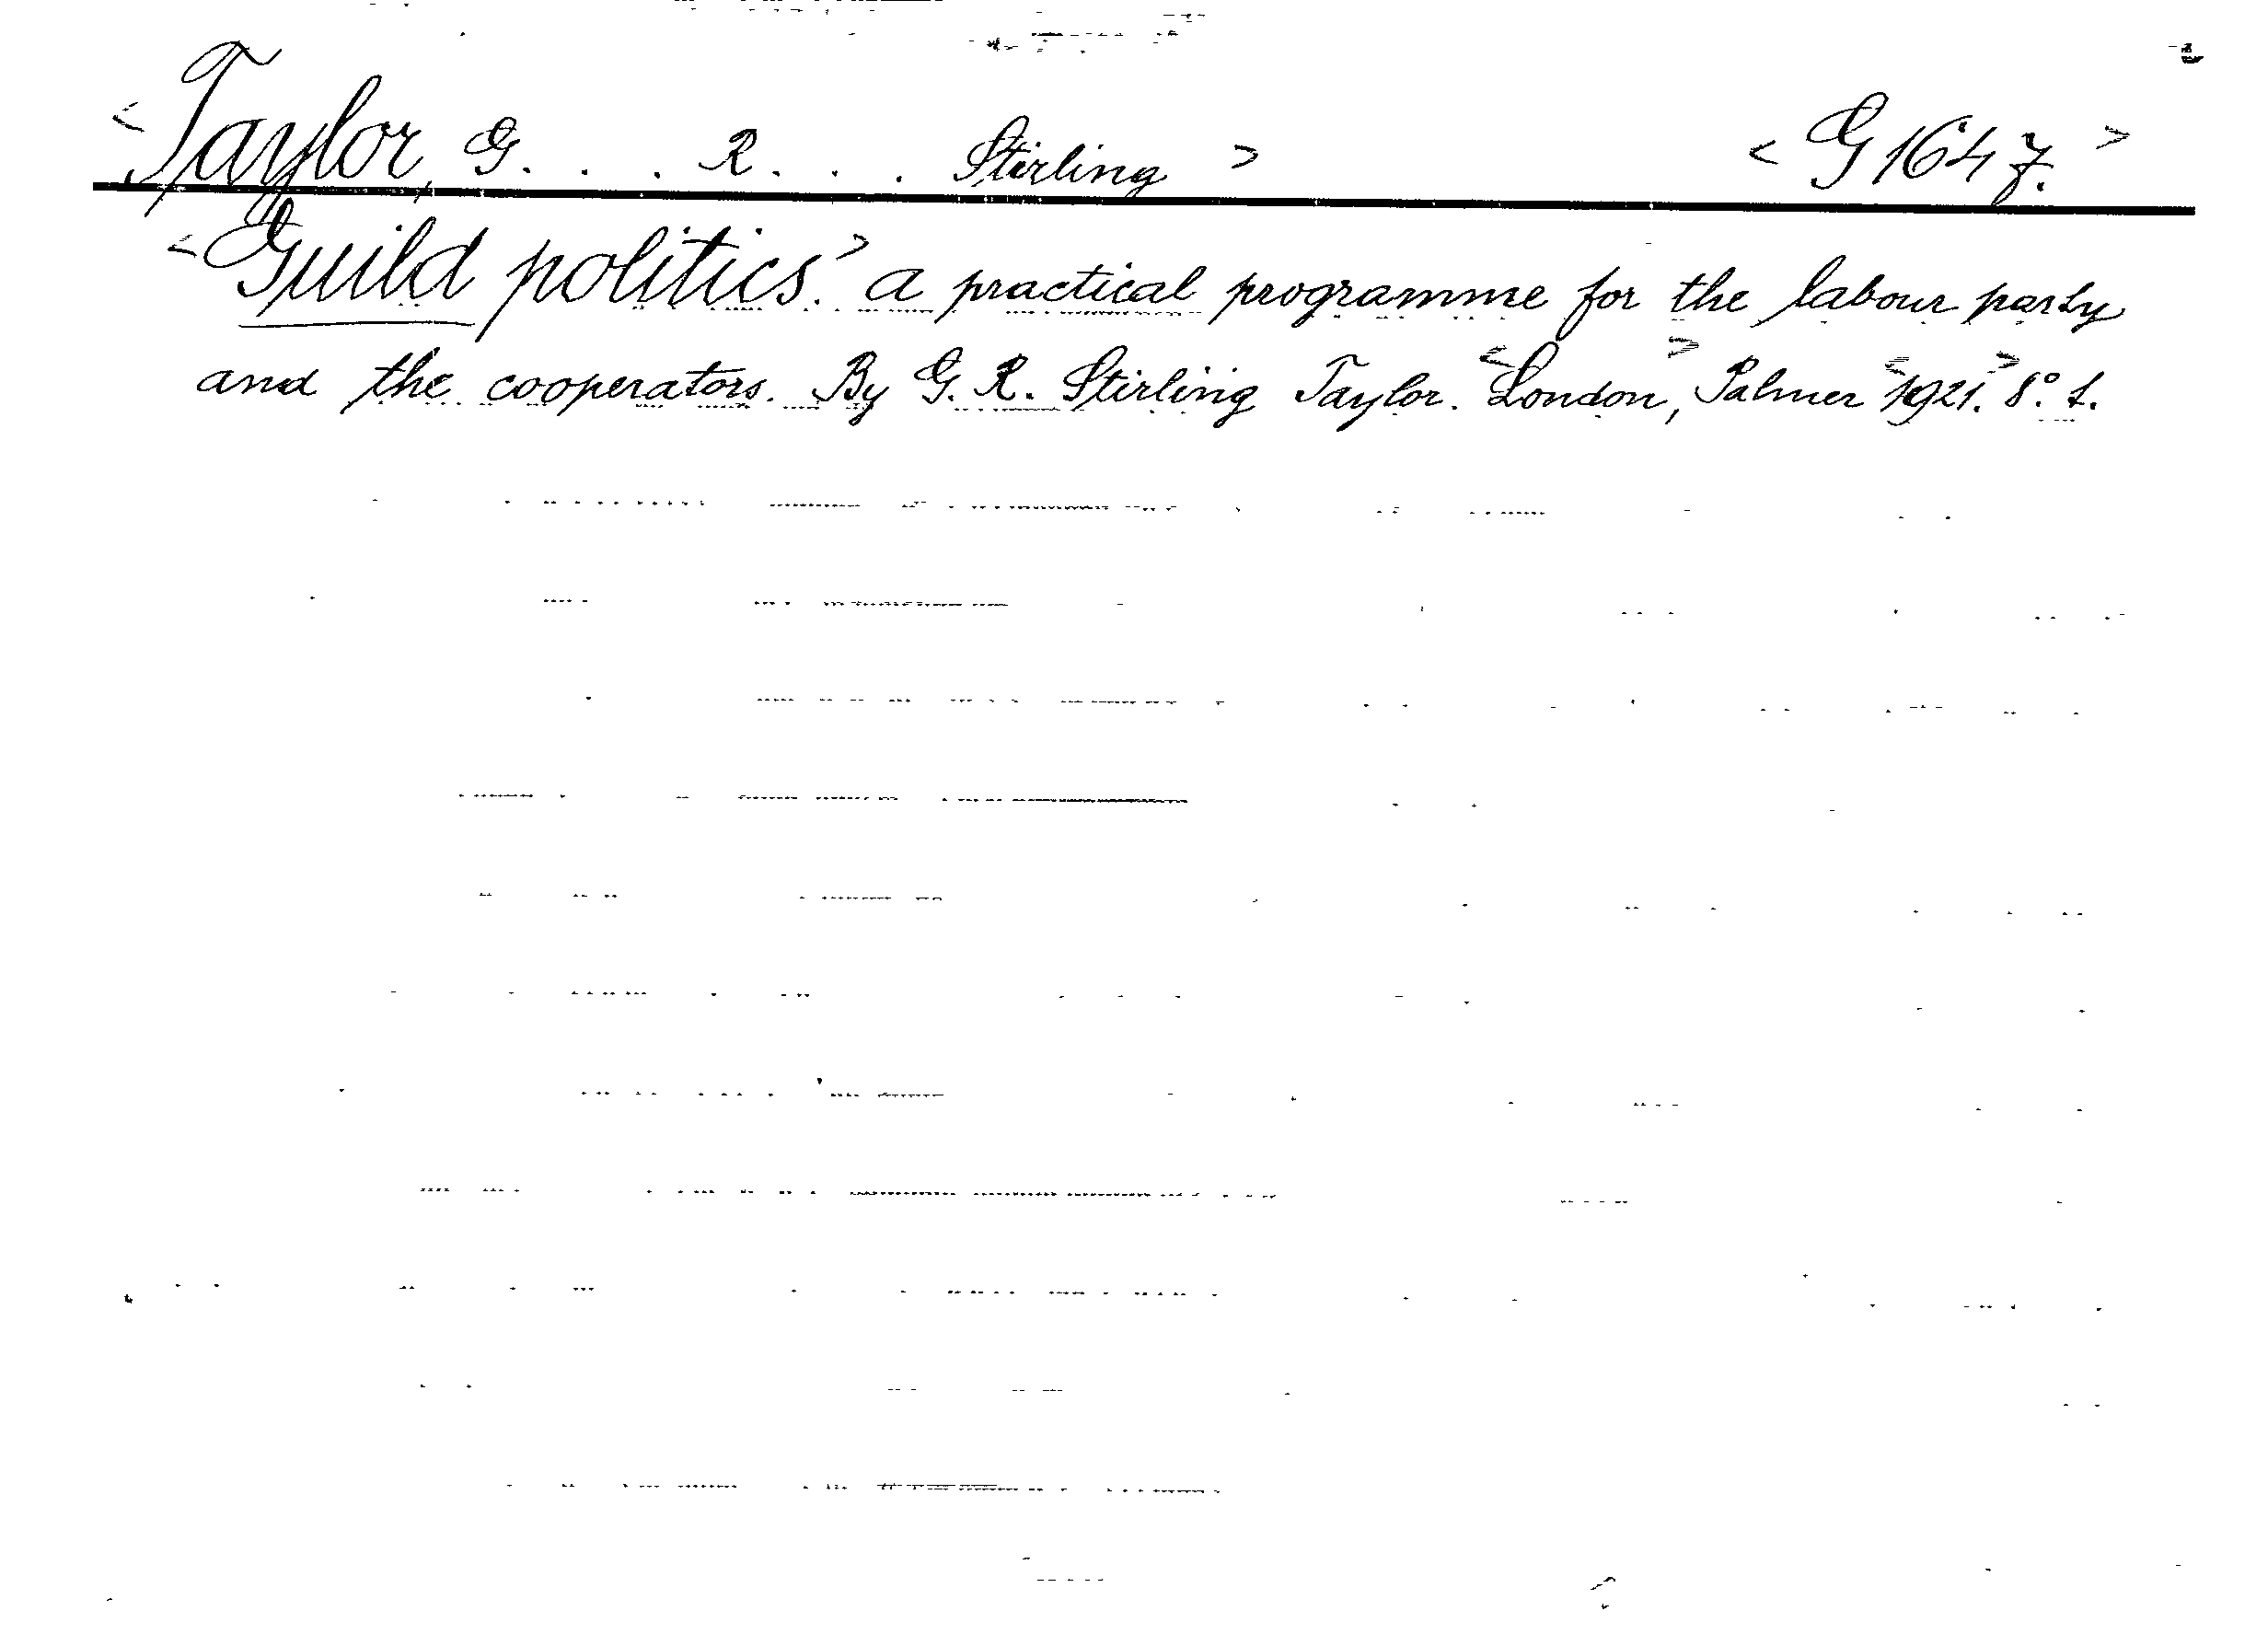 <Taylor, G. . . R. . . Stirling> <G 1647.>
<Guild politics.> a practical programme for the labour party
and the cooperators. By G. R. Stirling Taylor. <London>, Palmer <1921.> 8°. 1.